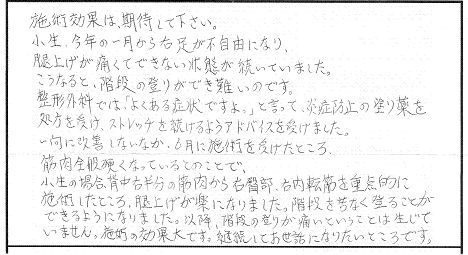 施術効果は、期待して下さい。
小生、今年の一月から右足が不自由になり、
腿上げが痛くてできない状態が続いていました。
こうなると、階段の登りができ難いのです。
整形外科では「よくある症状ですよ。」と言って、炎症防止の塗り薬を
処方を受け、ストレッチを続けるようアドバイスを受けました。
一向に改善しないなか、6月に施術を受けたところ、
筋肉全般硬くなっているとのことで、
小生の場合、背中右半分の筋肉から右臀部、右内転筋を重点的に
施術したところ、腿上げが楽になりました。階段を苦なく登ることが
できるようになりました。以降、階段の登りが痛いということは生じて
いません。施術の効果大です。継続してお世話になりたいところです。